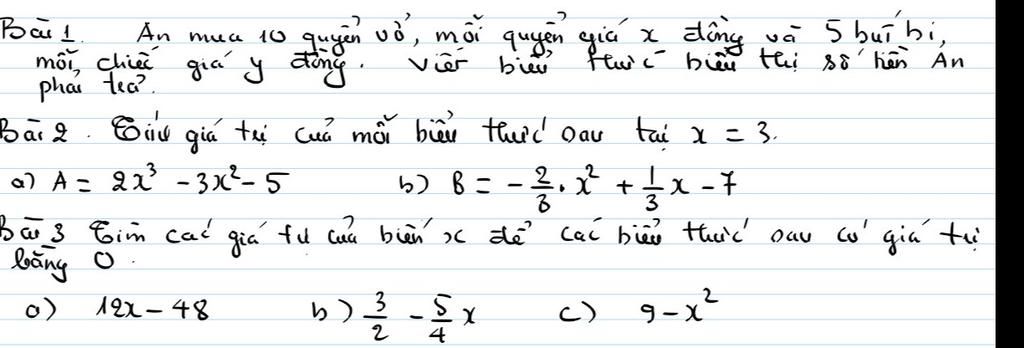 Bài 1. An mua 10 quyển vở, mỗi quyển giá x đồng và 5 bút bi,
mỗi chiếc giá y đồng. Viết biểu thức biểu thị số tiền An
phải trả.
Bài 2. Tính giá trị của mỗi biểu thức sau tại x = 3.
a) A = 2x³ - 3x² - 5 b) B = -2/3 . x² + 1/3 x - 7
Bài 3 Tìm các giá trị của biến x để các biểu thức sau có giá trị
bằng 0.
a) 12x - 48 b) 3/2 - 5/4 x c) 9 - x²